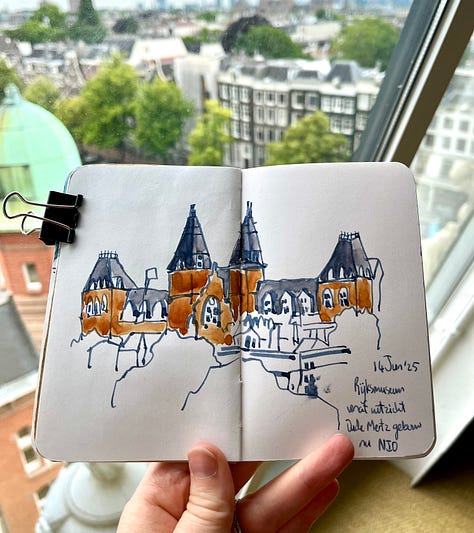 14 Jun '25
Rijksmuseum
vnaf uitzicht
Dude Metz gebouw
nu NIO